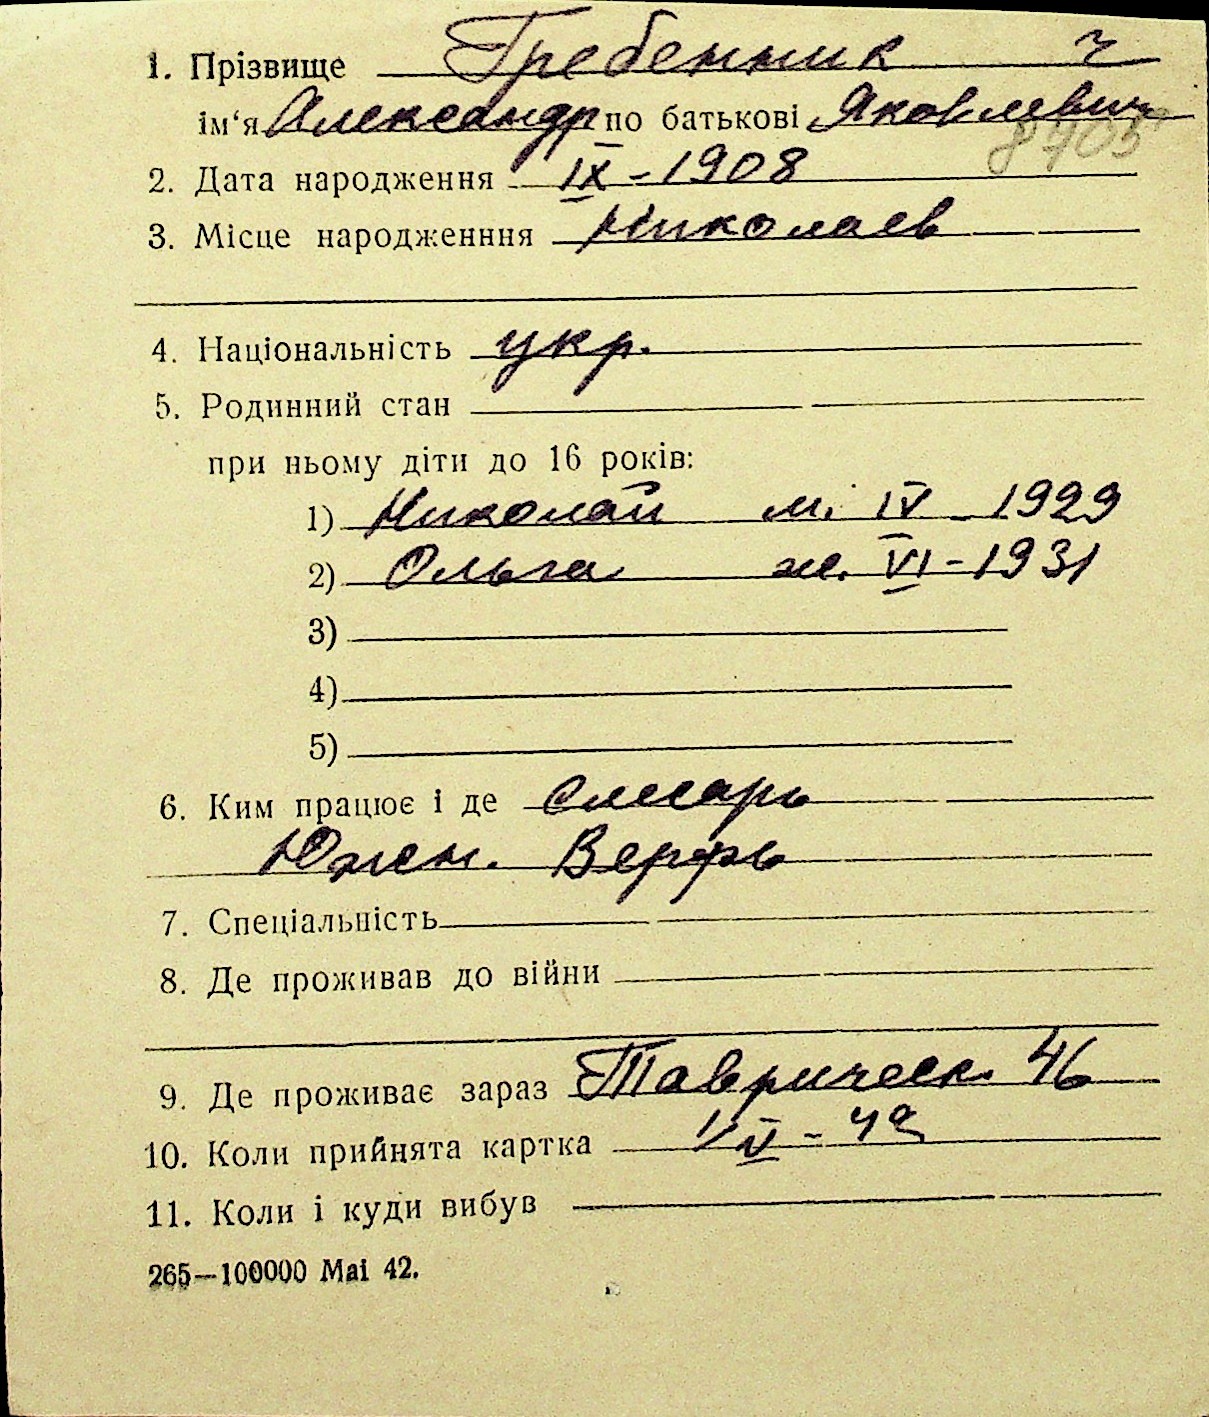 1. Прізвище Гребенник ч
ім'я Александр по батькові Яковлевич
8705
2. Дата народження IX - 1908
3. Місце народженння Николаев
4. Національність укр.
5. Родинний стан
при ньому діти до 16 років:
1) Николай м. IV - 1929
2) Ольга ж. VI - 1931
3)
4)
5)
6. Ким працює і де Слесарь
Южн. Верфь
7. Спеціальність
8. Де проживав до війни
9. Де проживає зараз Таврическ. 46
10. Коли прийнята картка 1/V - 42
11. Коли і куди вибув
265—100000 Mai 42.